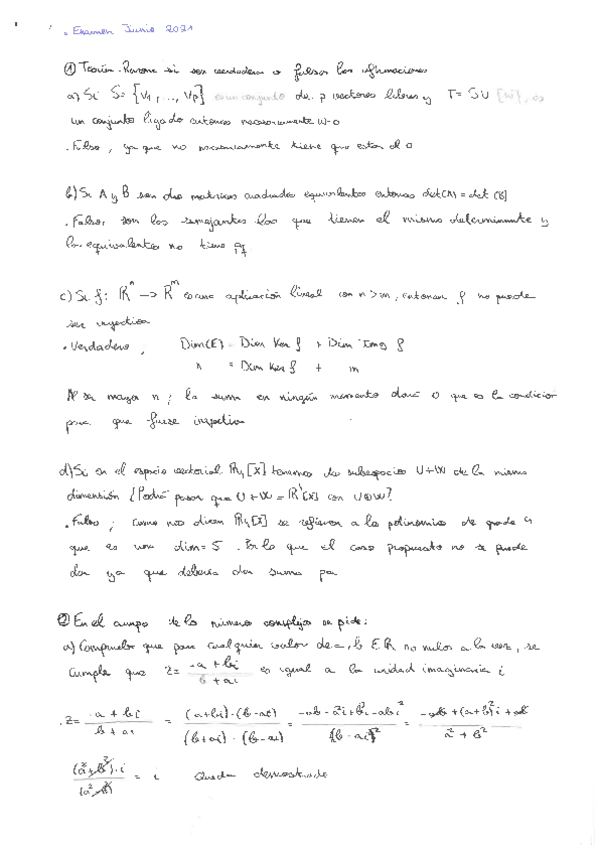 . Examen Junio 2021
① Teoría. Razona si son verdaderas o falsas las afirmaciones
a) Si S = {v1, ..., vp} es un conjunto de p vectores libres y T = S ∪ {w}, es
un conjunto ligado entonces necesariamente w=0
. Falso, ya que no necesariamente tiene que estar el 0
b) Si A y B son dos matrices cuadradas equivalentes entonces det(A) = det(B)
. Falso, son las semejantes las que tienen el mismo determinante y
las equivalentes no tiene
c) Si f: Rⁿ → Rᵐ es una aplicación lineal con n>m, entonces f no puede
ser inyectiva
. Verdadero, Dim(E) = Dim Ker f + Dim Img f
n = Dim Ker f + m
Al ser mayor n; la suma en ningún momento dará 0 que es la condición
para que fuese inyectiva
d) Si en el espacio vectorial R4[X] tenemos dos subespacios U + W de la misma
dimensión ¿Podrá pasar que U + W = R[X] con U⊕W?
. Falso; como nos dicen R4[X] se refieren a los polinomios de grado 4
que es una dim = 5. Por lo que el caso propuesto no se puede
dar ya que debería dar suma par
② En el campo de los números complejos se pide:
a) Comprueba que para cualquier valor de a, b ∈ R no nulos a la vez, se
cumple que z = (-a + bi)/(b + ai) es igual a la unidad imaginaria i
. z = (-a + bi)/(b + ai) = (a+bi)·(b-ai)/(b+ai)·(b-ai) = (-ab - a²i + b²i - abi²)/(b - ai)² = (-ab + (a+b)²i + ab)/(a² + b²)
(a²+b²)·i/(a²+b²) = i Queda demostrado